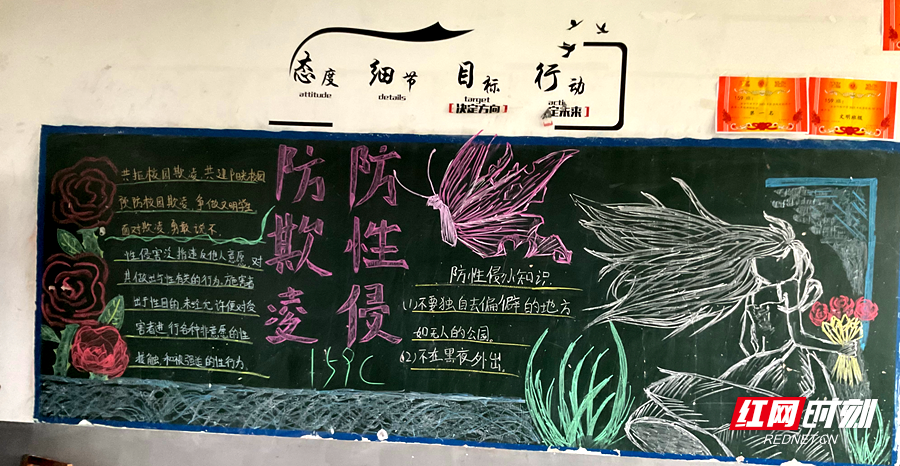 态度 细节 目标 行动
attitude details target
[决定方向]
定未来]
第一名
文明班级
共拒校园欺凌 共建阳光校园
预防校园欺凌 争做文明学生
面对欺凌 勇敢说不
性侵害泛指违反他人意愿 对
其做出与性有关的行为,施害者
出于性目的 未经允许便对受
害者进行各种非意愿的性
接触和被强迫的性行为
防欺凌
防性侵
159C
防性侵小知识:
(1)不要独自去偏僻的地方
如无人的公园。
(2)不在黑夜外出.
红网时刻
REDNET.CN